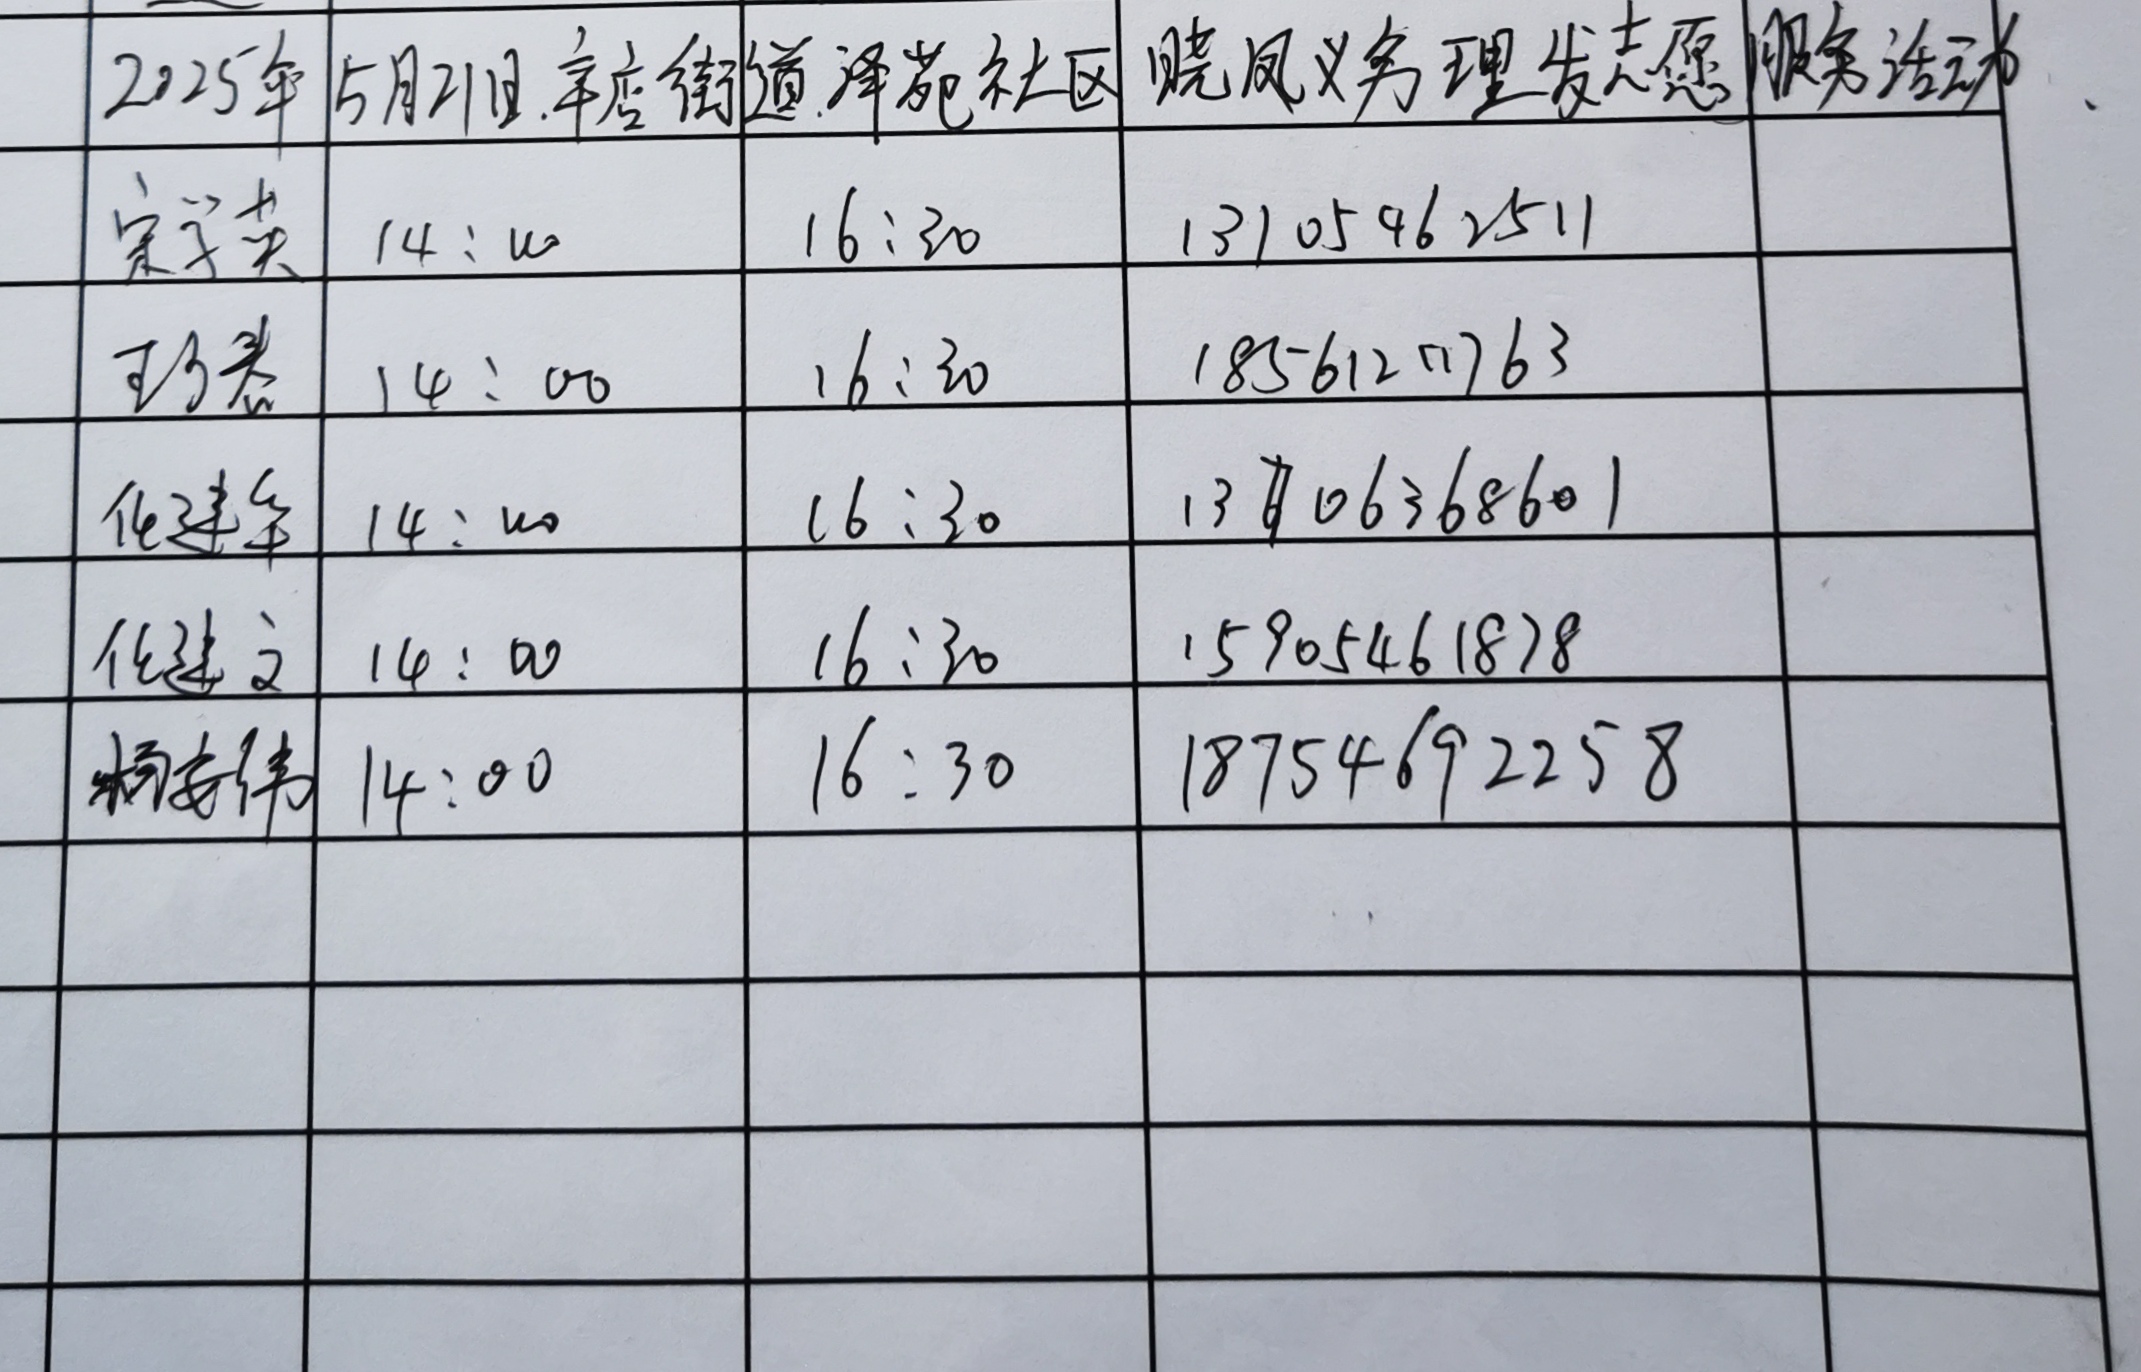 2025年5月21日.辛店街道.泽苑社区晓凤义务理发志愿服务活动
宋学英 14:00 16:30 13105462511
14:00 16:30 18561277763
任建华 14:00 16:30 06368601
任建文 14:00 16:30 15905461878
杨安伟 14:00 16:30 18754692258